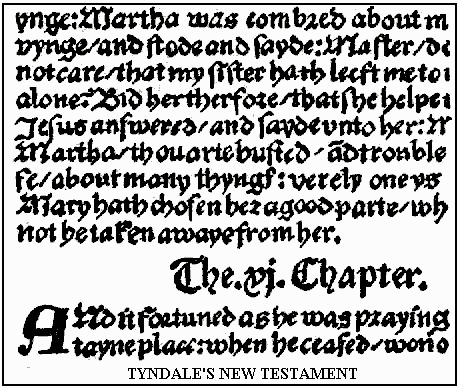 ynge: Martha was combred about m
vynge/and stode and sayde: Master/do
not care/that my sister hath leeft me to i
alone? Bid her therfore/that she helpe t
Jesus answered/and sayde vnto her: M
Martha/thou arte busied/ ãd trouble
se/about many thyngs: verely one ys
Mary hath chosen her a good parte/wh
not be taken awaye from her.
The .xj. Chapter.
ANd it fortuned as he was praying
tayne place: when he ceased/won o
TYNDALE'S NEW TESTAMENT